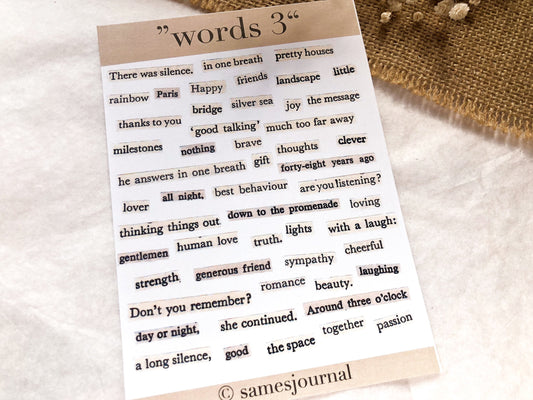 ”words 3“
There was silence. in one breath pretty houses
rainbow Paris Happy friends landscape little
bridge silver sea joy the message
thanks to you ‘good talking’ much too far away
milestones nothing brave thoughts clever
he answers in one breath gift forty-eight years ago
lover all night, best behaviour are you listening?
thinking things out down to the promenade loving
gentlemen human love truth. lights with a laugh:
strength generous friend sympathy cheerful
Don’t you remember? romance beauty. laughing
day or night, she continued. Around three o’clock
a long silence, good the space together passion
© samesjournal